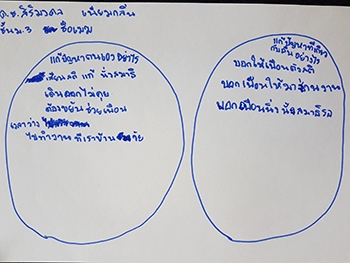 ด.ช.สิริมงคล เนียมกลิ่น
ชั้น ม.3 ชื่อเมม
แก้ปัญหาตนเองอย่างไร
ตั้งสติ แก้ นั่งสมาธิ
เดินออกไปคุย
ต้องขยันช่วยเพื่อน
เวลาว่าง
ไปทำงาน ที่เราบ้าน
แก้ปัญหาที่เกี่ยว
กับคนอย่างไร
บอกให้เพื่อนตั้งสติ
บอกเพื่อนให้
พาเพื่อนนั่งสมาธิ